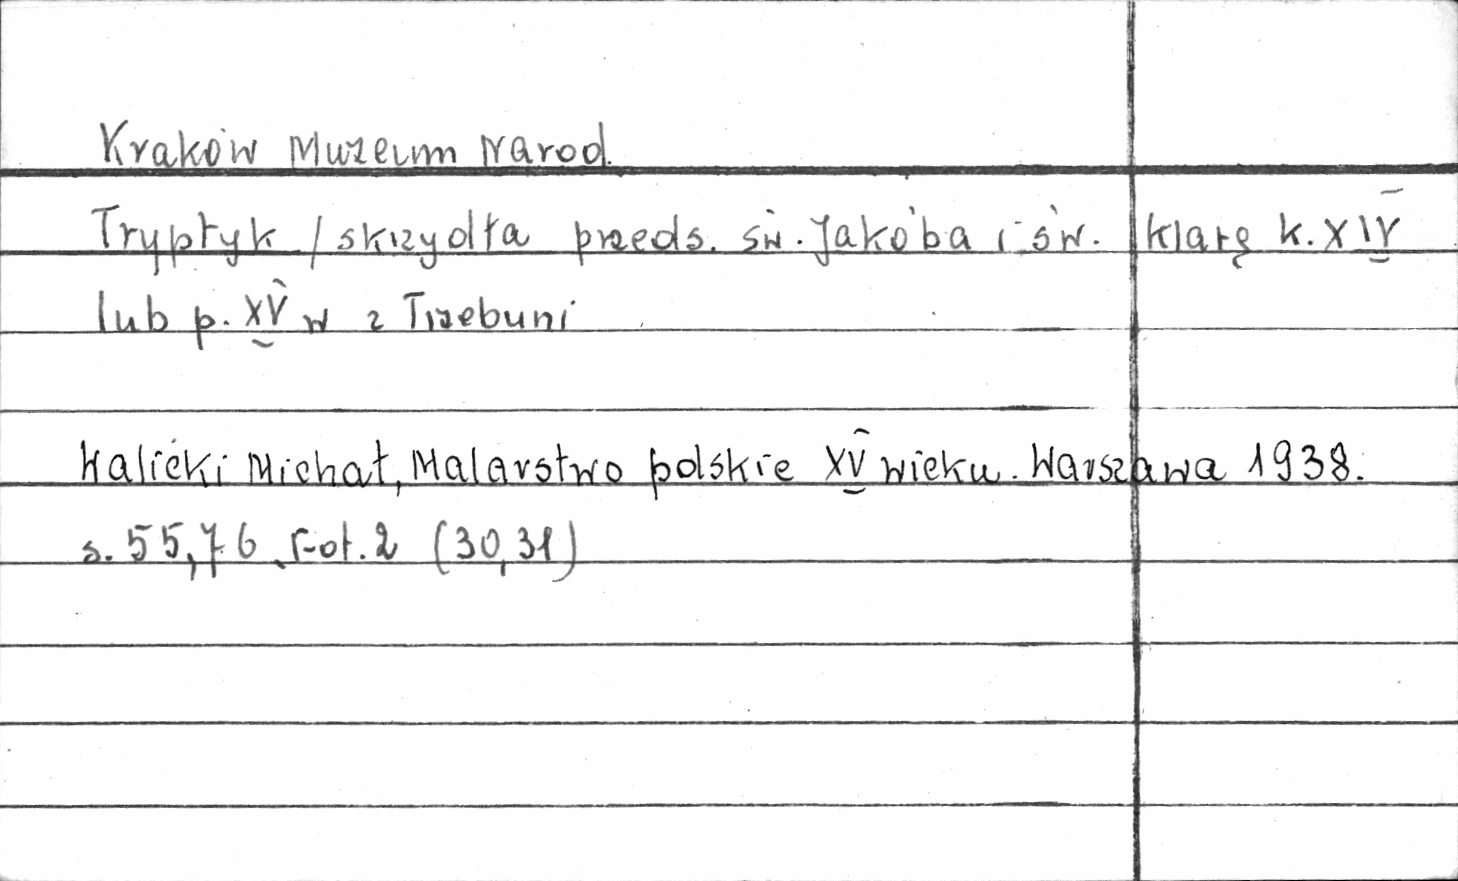 Kraków Muzeum Narod.
Tryptyk / skrzydła przeds. św. Jakóba i św. Klarę k. XIV
lub p. XV w z Trzebuni
Walicki Michał, Malarstwo polskie XV wieku. Warszawa 1938.
s. 55, 76, Fot. 2 (30, 31)